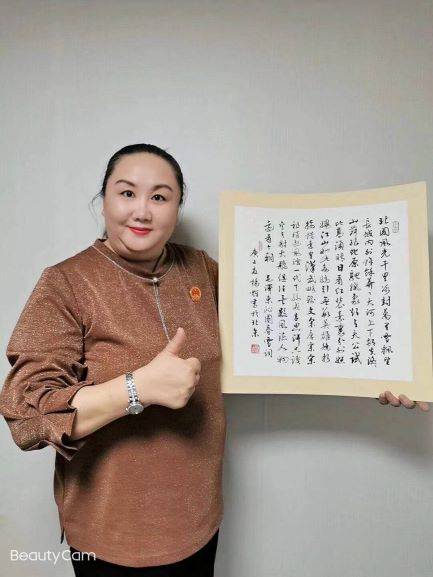 北國風光千里冰封萬里雪飄望
長城内外惟餘莽莽大河上下頓失滔滔
山舞銀蛇原馳蠟象欲與天公試
比高須晴日看紅裝素裹分外妖
嬈江山如此多嬌引無數英雄競折
腰惜秦皇漢武略輸文采唐宗宋
祖稍遜風騷一代天驕成吉思汗只識
彎弓射大雕俱往矣數風流人物
還看今朝 毛澤東沁園春雪詞
庚子 書於北京
BeautyCam